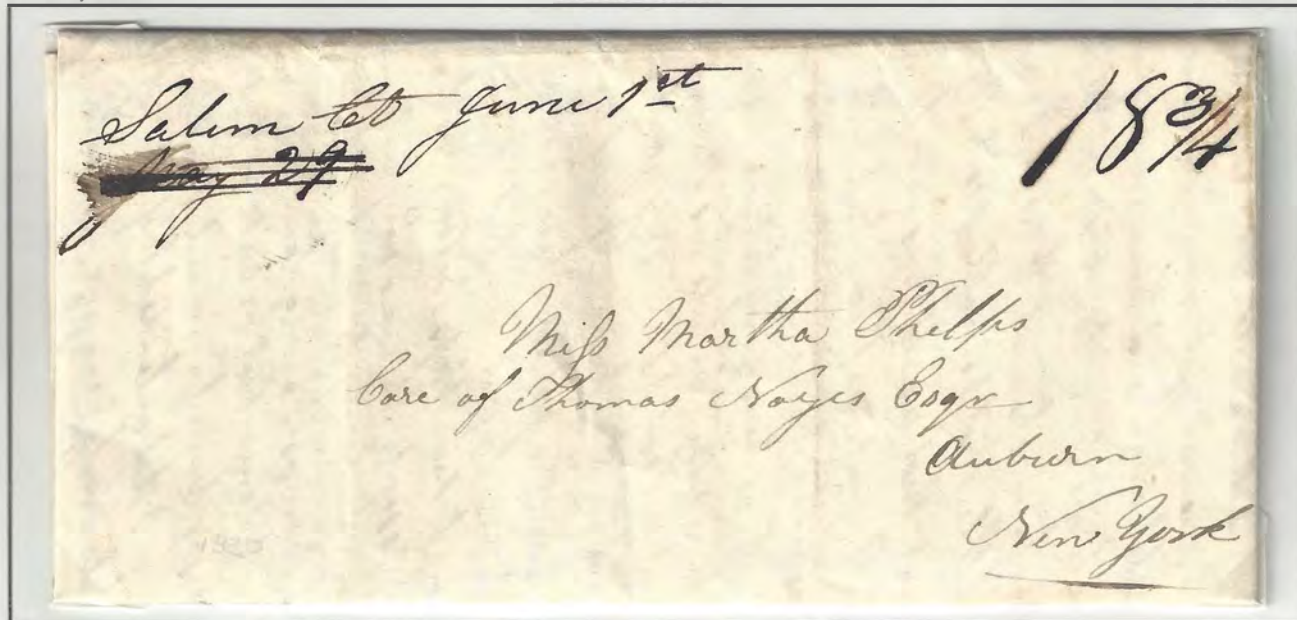 Salem Ct June 1st
May 29
18 3/4
Miss Martha Phelps
Care of Thomas Noyes Esqr
Auburn
New York